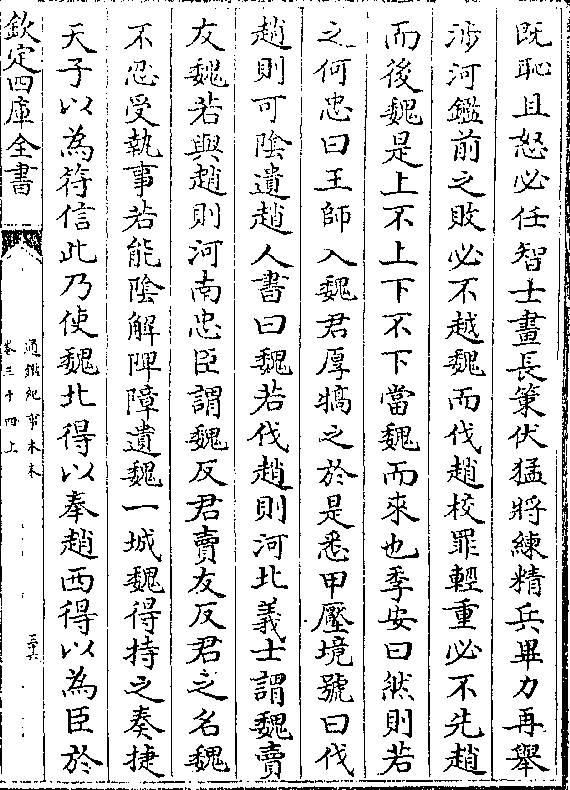 既恥且怒必任智士畫長策伏猛將練精兵畢力再舉
涉河鑑前之敗必不越魏而伐趙校罪輕重必不先趙
而後魏是上不上下不下當魏而來也季安曰然則若
之何忠曰王師入魏君厚犒之於是悉甲壓境號曰伐
趙則可陰遺趙人書曰魏若伐趙則河北義士謂魏賣
友魏若與趙則河南忠臣謂魏反君賣友反君之名魏
不忍受執事若能陰解陴障遺魏一城魏得持之奏捷
天子以為符信此乃使魏北得以奉趙西得以為臣於
欽定四庫全書
通鑑紀事本末
卷三十四上
三六